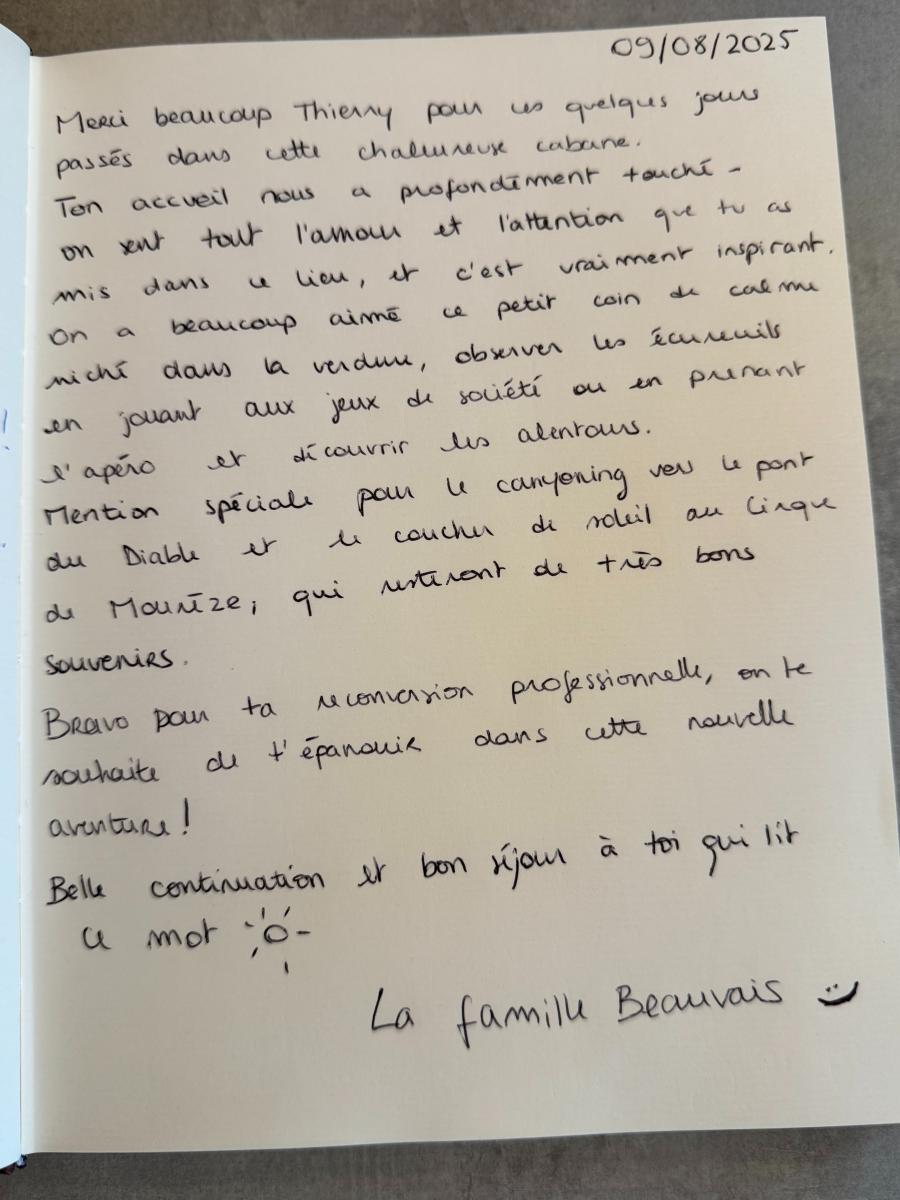 09/08/2025
Merci beaucoup Thierry pour ces quelques jours
passés dans cette chaleureuse cabane.
Ton accueil nous a profondément touché -
on sent tout l'amour et l'attention que tu as
mis dans ce lieu, et c'est vraiment inspirant.
On a beaucoup aimé ce petit coin de calme
niché dans la verdure, observer les écureuils
en jouant aux jeux de société ou en prenant
l'apéro et découvrir les alentours.
Mention spéciale pour le canyoning vers le pont
du Diable et le coucher de soleil au Cirque
de Mourèze, qui resteront de très bons
souvenirs.
Bravo pour ta reconversion professionnelle, on te
souhaite de t'épanouir dans cette nouvelle
aventure !
Belle continuation et bon séjour à toi qui lit
ce mot
La famille Beauvais